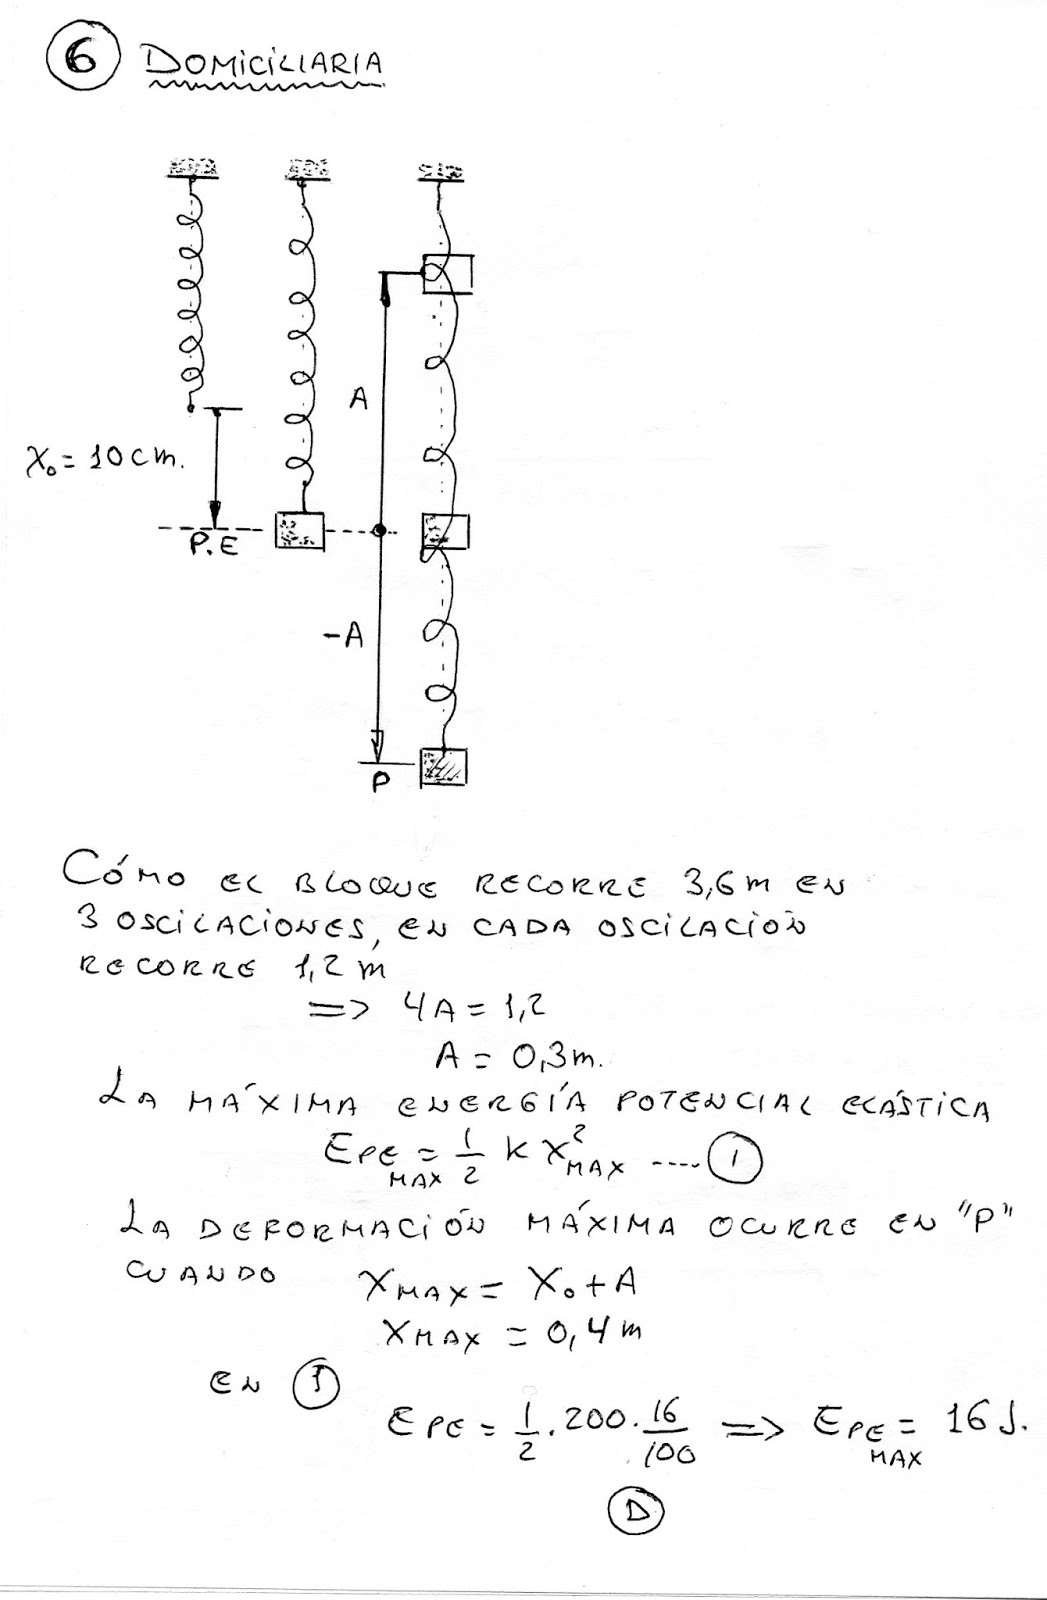 6 DOMICILIARIA
A
X₀ = 10 cm.
P.E
-A
P
CÓMO EL BLOQUE RECORRE 3,6 m EN
3 OSCILACIONES, EN CADA OSCILACIÓN
RECORRE 1,2 m
=> 4A = 1,2
A = 0,3 m.
LA MÁXIMA ENERGÍA POTENCIAL ELÁSTICA
E_PE MAX = 1/2 K X²_MAX ---- (1)
LA DEFORMACIÓN MÁXIMA OCURRE EN "P"
CUANDO X_MAX = X₀ + A
X_MAX = 0,4 m
EN (1)
E_PE = 1/2 . 200 . 16/100 => E_PE MAX = 16 J.
D